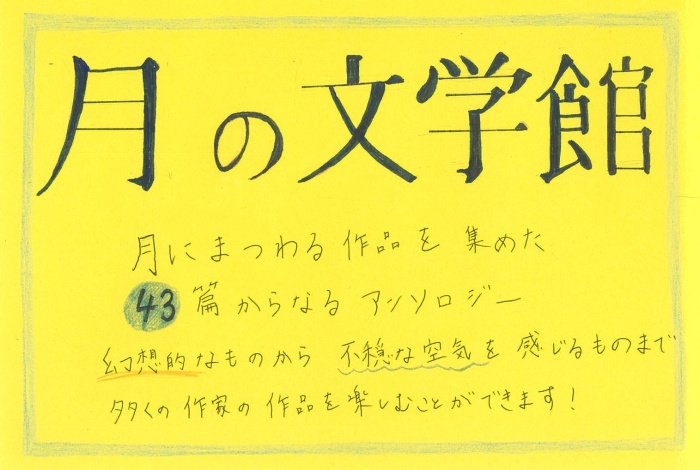 月の文学館
月にまつわる作品を集めた
43篇からなるアンソロジー
幻想的なものから不穏な空気を感じるものまで
多くの作家の作品を楽しむことができます!